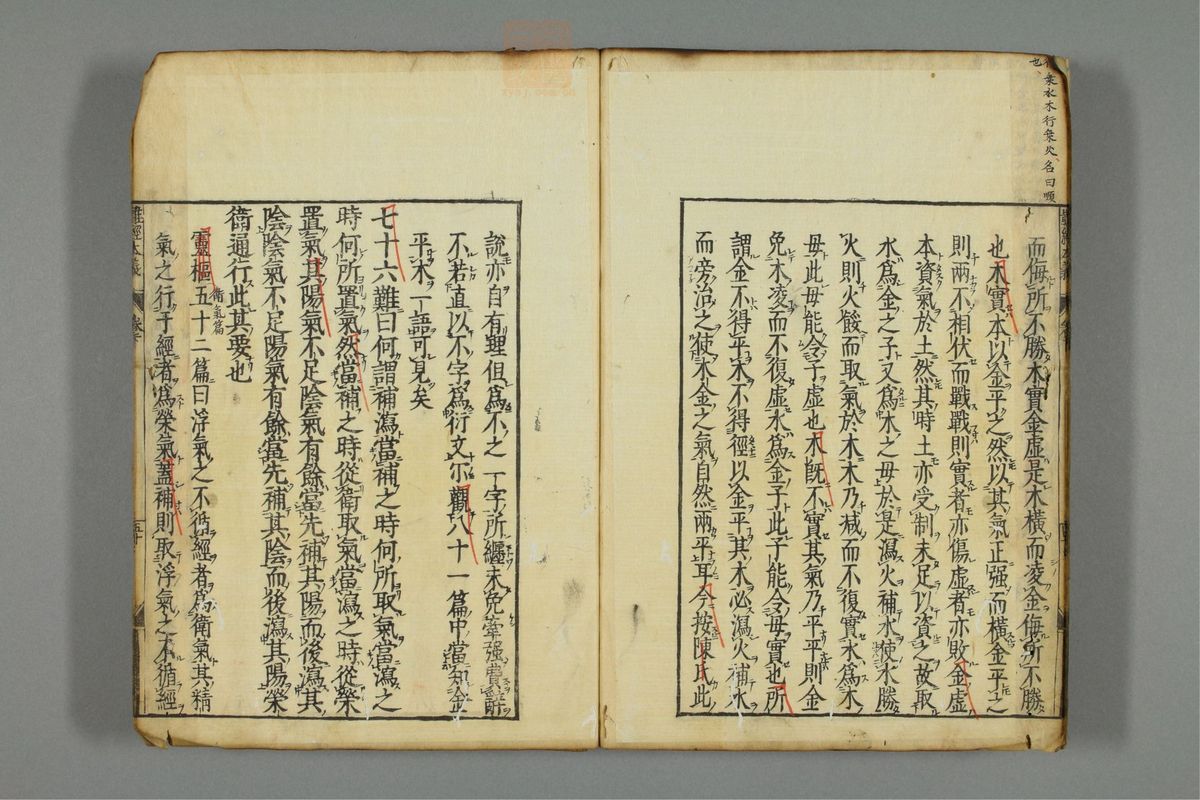 乘水木行乘火名曰順
也
而侮所不勝木實金虛是木横而凌金侮所不勝
也木實本以金平之然以其氣正强而横金平之
則兩不相伏而戰戰則實者亦傷虛者亦敗金虛
本資氣於土然其時土亦受制未足以資之故取
水爲金之子又爲木之母於是瀉火補水使水勝
火則火餒而取氣於木木乃减而不復實水爲木
母此母能令子虛也木旣不實其氣乃平平則金
免木凌而不復虛水爲金子此子能令母實也所
謂金不得平木不得徑以金平其木必瀉火補水
而旁治之使木金之氣自然兩平耳今按陳氏此
說亦自有理但爲不之一字所纒未免牽强費辭
不若直以不字爲衍文尓觀八十一篇中當知金
平木一語可見矣
七十六難曰何謂補瀉當補之時何所取氣當瀉之
時何所置氣然當補之時從衛取氣當瀉之時從榮
置氣其陽氣不足陰氣有餘當先補其陽而後瀉其
陰陰氣不足陽氣有餘當先補其陰而後瀉其陽榮
衛通行此其要也
靈樞五十二篇曰浮氣之不循經者爲衛氣其精
衛氣篇
氣之行于經者爲榮氣蓋補則取浮氣之不循經
難經本義